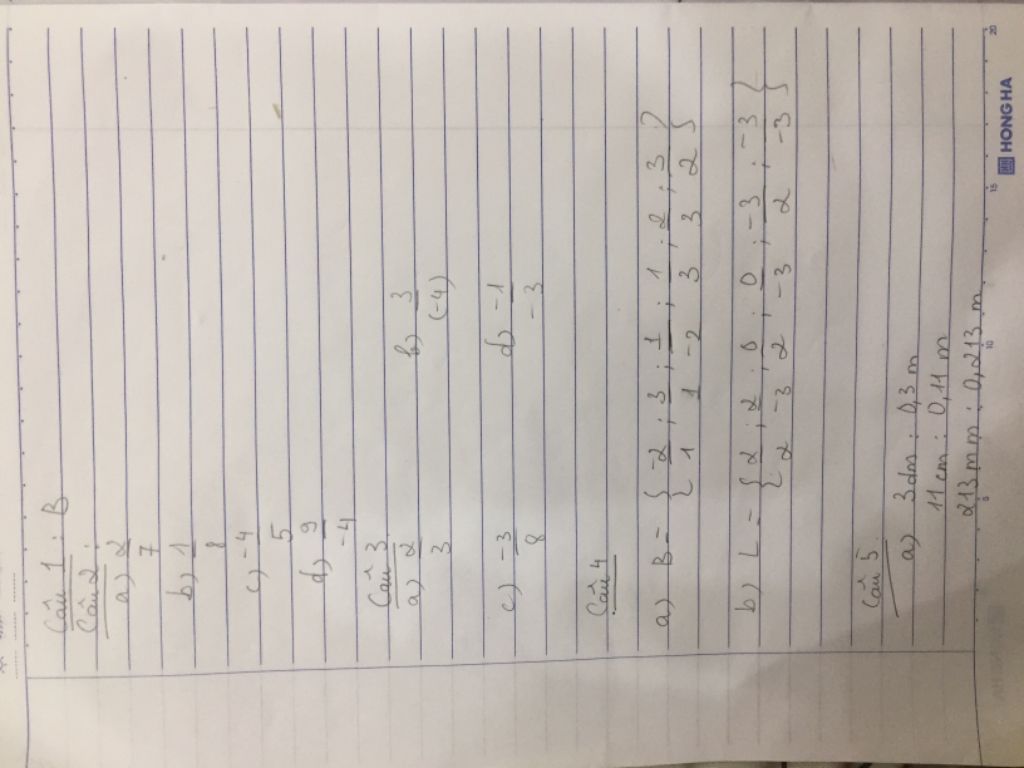 Câu 1 : B
Câu 2 :
a) 2/7
b) 1/8
c) -4/5
d) 9/-4
Câu 3
a) 2/3 b) 3/(-4)
c) -3/8 d) -1/-3
Câu 4
a) B = { -2/1 ; 3/1 ; 1/-2 ; 1/3 ; 2/3 ; 3/2 }
b) L = { 2/2 ; 2/-3 ; 0/2 ; 0/-3 ; -3/2 ; -3/-3 }
Câu 5
a) 3 dm : 0,3 m
11 cm : 0,11 m
213 mm : 0,213 m
5 10 15 20
HONG HA